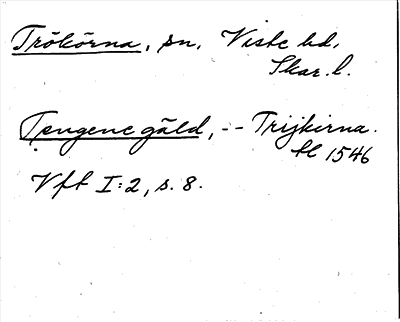 Trökörna, sn. Viste hd.
Skar. l.
Tengene gäld, -- Trijkirna.
tl 1546
Vft I:2, s. 8.